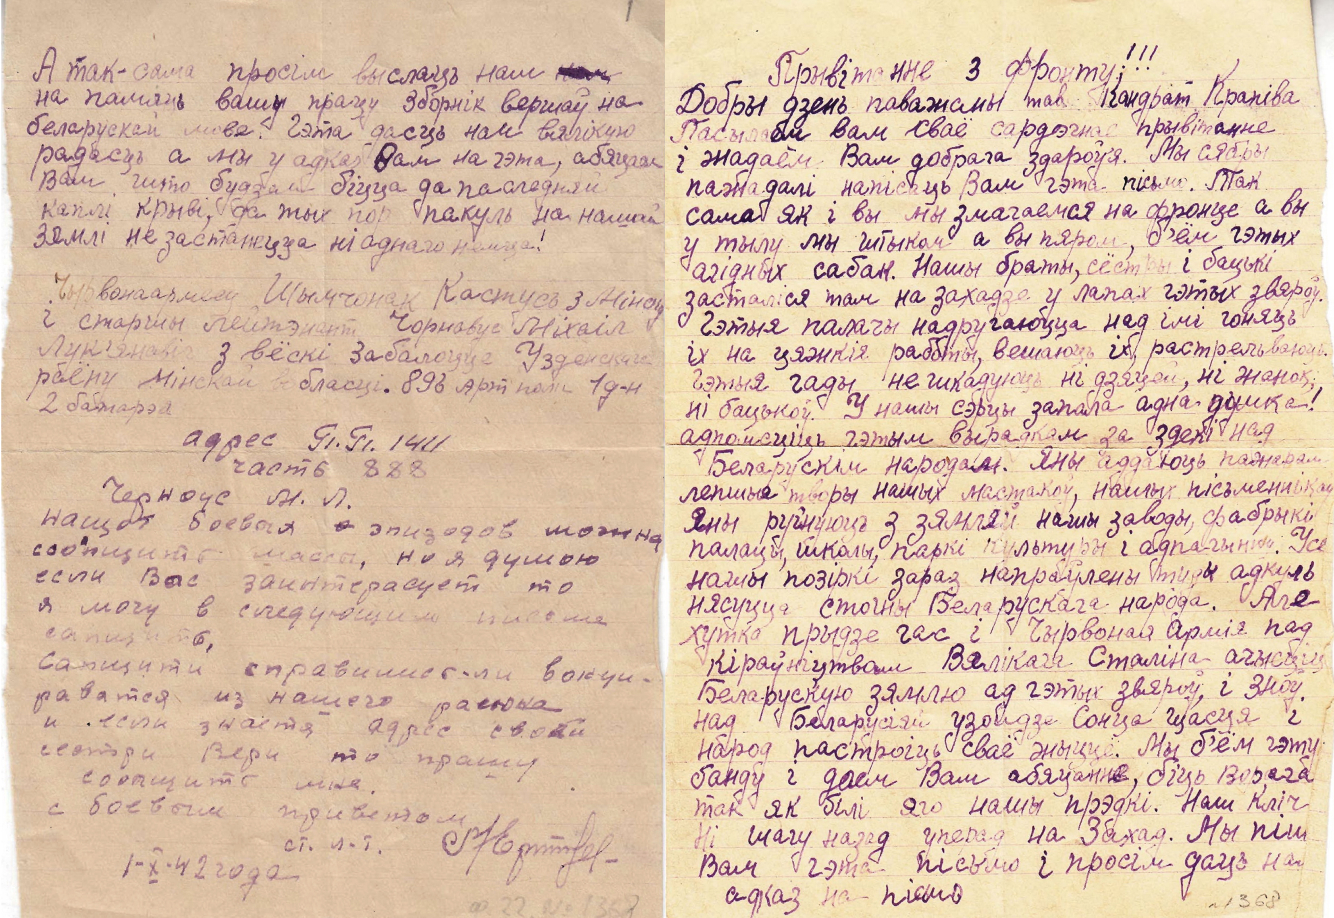 1
А так-сама просім выслаць нам
на памяць вашу працу Зборнік вершаў на
беларускай мове. Гэта дасць нам вялікую
радасць а мы у адказ Вам на гэта, абяцаем
Вам, што будзем біцца да последняй
каплі крыві, да тых пор пакуль на нашай
зямлі не застанецца ні аднаго немца!
Чырвонаармеец Шымчонак Кастусь з Мінску
і старшы лейтэнант Чорнавус Міхаіл
Лук'янавіч з вёскі Забалоцце Узденскага
раёну Мінскай вобласці. 896 Арт полк 1 д-н
2 батарэя
адрес П.П. 1411
часть 888
Черноус М. Л.
нащот боевых эпизодов можна
сообщить массы, но я думою
если Вас заинтерасует то
я могу в следующим писме
сапщить,
Сапщити справились-ли вокуи-
раватся из нашего раиона
и если знаетя адрес своей
сестри Вери то прашу
сообщить мне.
с боевым приветом
ст. л-т.
1-X-42 года
ф. 22, № 1368
Прывітанне з фронту!!!
Добры дзень паважаны тав. Кандрат Крапіва
Пасылаем вам сваё сардэчнае прывітанне
і жадаем Вам добрага здароўя. Мы сябры
пажадалі напісаць Вам гэта пісьмо. Так
сама як і вы мы змагаемся на фронце а вы
у тылу мы штыком а вы пяром, б'ём гэтых
агідных сабак. Нашы браты, сёстры і бацькі
засталіся там на захадзе у лапах гэтых звяроў.
Гэтыя палачы надругаюцца над імі гоняць
іх на цяжкія работы, вешаюць іх, растрельваюць.
Гэтыя гады не шкадуюць ні дзяцей, ні жанок,
ні бацькоў. У нашы сэрцы запала адна думка!
адпомсціць гэтым вырадкам за здекі над
Беларускім народам. Яны аддаюць пажарам
лепшыя творы нашых мастакоў, нашых пісьменнікаў
Яны руйнуюць з зямлёй нашы заводы, фабрыкі
палацы, школы, паркі культуры і адпачынку. Усе
нашы позіркі зараз напраўлены туды адкуль
нясуцца стогны Беларускага народа. Але
хутка прыдзе час і Чырвоная Армія пад
кіраўніцтвам Вялікага Сталіна ачысціць
Беларускую зямлю ад гэтых звяроў, і зноў
над Беларусіяй узойдзе Сонца щасця і
народ пастроіць сваё жыццё. Мы б'ём гэту
банду і даем Вам абяцанне, біць ворага
так як білі яго нашы прэдкі. Наш кліч
Ні шагу назад уперад на Захад. Мы піш
Вам гэта пісьмо і просім даць нам
адказ на пісьмо
№1368